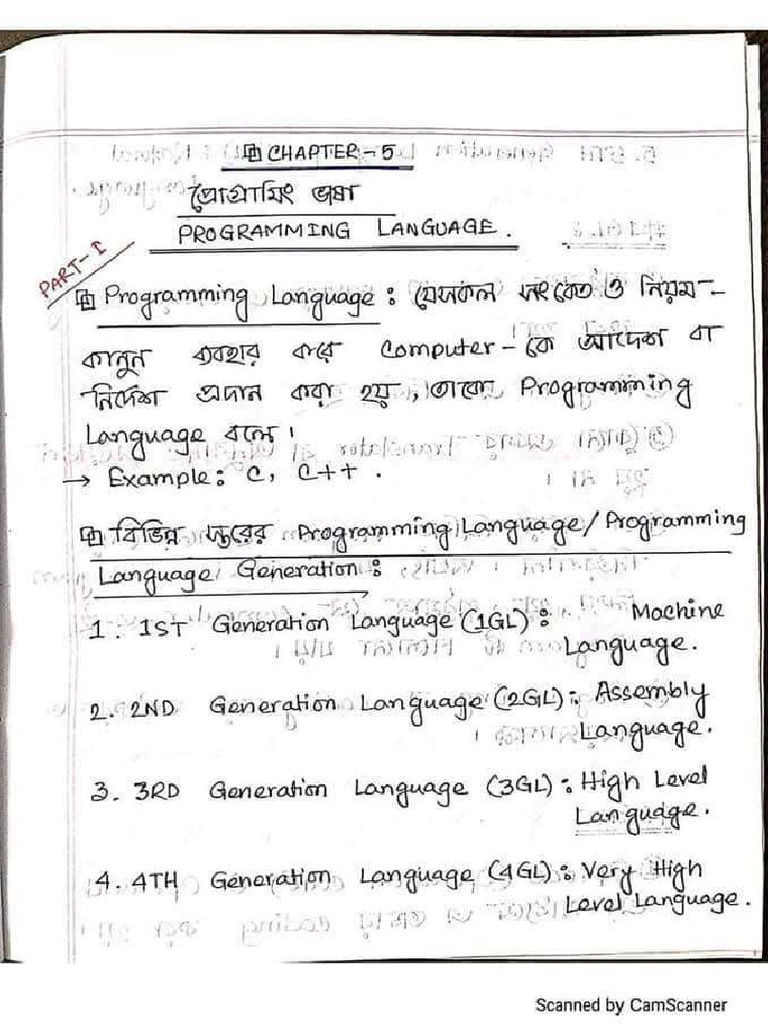 CHAPTER-5
প্রোগ্রামিং ভাষা
PROGRAMMING LANGUAGE.
PART-I
Programming Language: যেসকল সংকেত ও নিয়ম-
কানুন ব্যবহার করে Computer-কে আদেশ বা
নির্দেশ প্রদান করা হয়, তাকে Programming
Language বলে।
→ Example: C, C++.
বিভিন্ন স্তরের Programming Language/Programming
Language Generation:
1. 1ST Generation Language (1GL): Machine
Language.
2. 2ND Generation Language (2GL): Assembly
Language.
3. 3RD Generation Language (3GL): High Level
Language.
4. 4TH Generation Language (4GL): Very High
Level Language.
Scanned by CamScanner